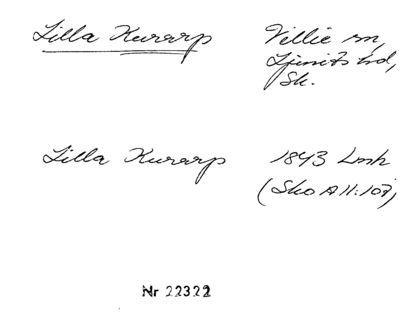 Lilla Kurarp Villie sn,
Ljunits hd,
Sk.
Lilla Kurarp 1843 Lmk
(Sko A II:107)
Nr 22322